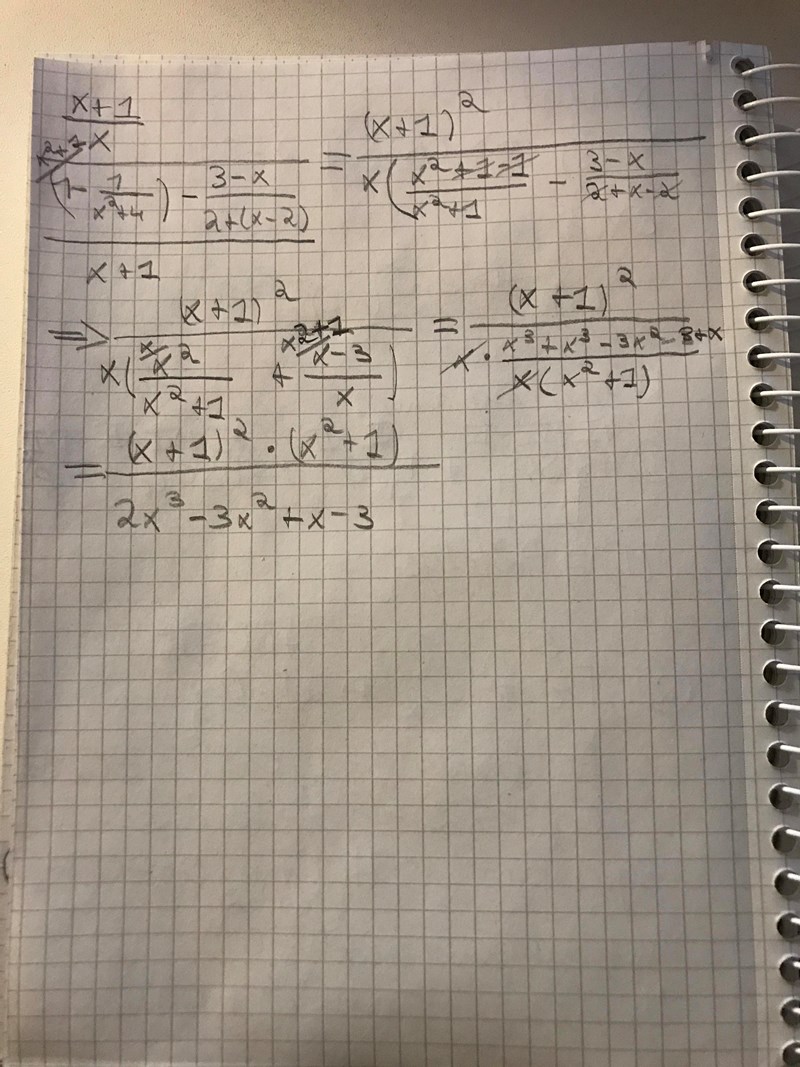 x+1
x
x²+1
(1 - 1/(x²+1)) - (3-x)/(2+(x-2))
x+1
= (x+1)² / x((x²+1-1)/(x²+1) - (3-x)/(2+x-2)
=> (x+1)² / x(x² / (x²+1) + (x-3)/x)
x
x²+1
= (x+1)² / x · (x³+x³-3x²-3+x) / x(x²+1)
= (x+1)² · (x²+1) / 2x³-3x²+x-3